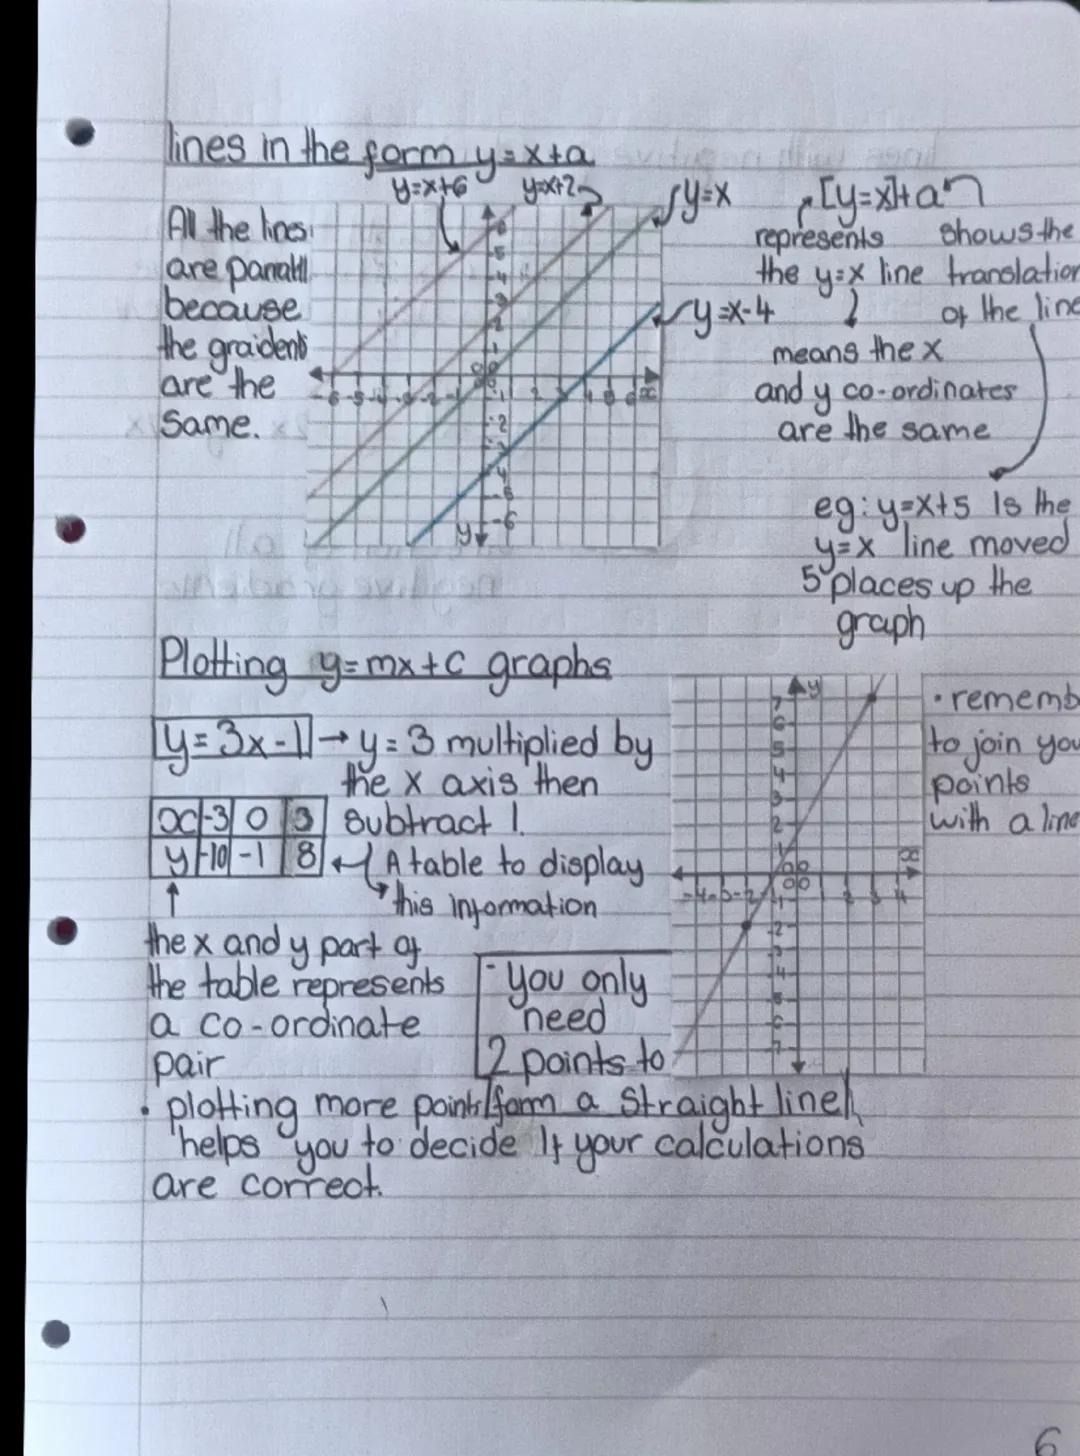 lines in the form y=x+a
y=x+6 y=x+2
y=x
[y=x]+a
All the lines
are parralll
because
the graident
are the
same.
represents
the y=x line
means the x
and y co-ordinates
are the same
shows the
translation
of the line
y=x-4
eg: y=x+5 Is the
y=x line moved
5 places up the
graph
6
5
4
3
2
1
x
-2
-6
y
Plotting y=mx+c graphs
y=3x-1 → y=3 multiplied by
the x axis then
subtract 1.
x -3 0 3
y -10 -1 8
A table to display
this information
the x and y part of
the table represents
a co-ordinate
pair
- you only
need
2 points to
form a straight line
y
7
6
5
4
3
2
1
x
• rememb
to join you
points
with a line
• plotting more points
helps you to decide If your calculations
are correct.
6